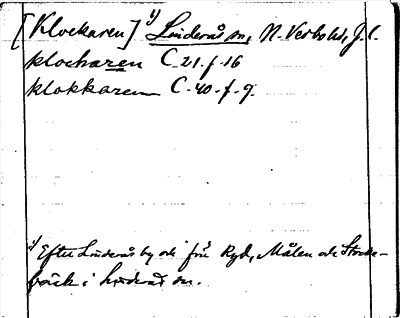 [Klockaren] 1) Linderås sn, N. Vedbo hd, J. l.
klockaren C 21-f-16
klokkaren C-40-f-9
1) Efter Linderås by och från Ryd, Målen och Stocke-
bäck i Linderås sn.